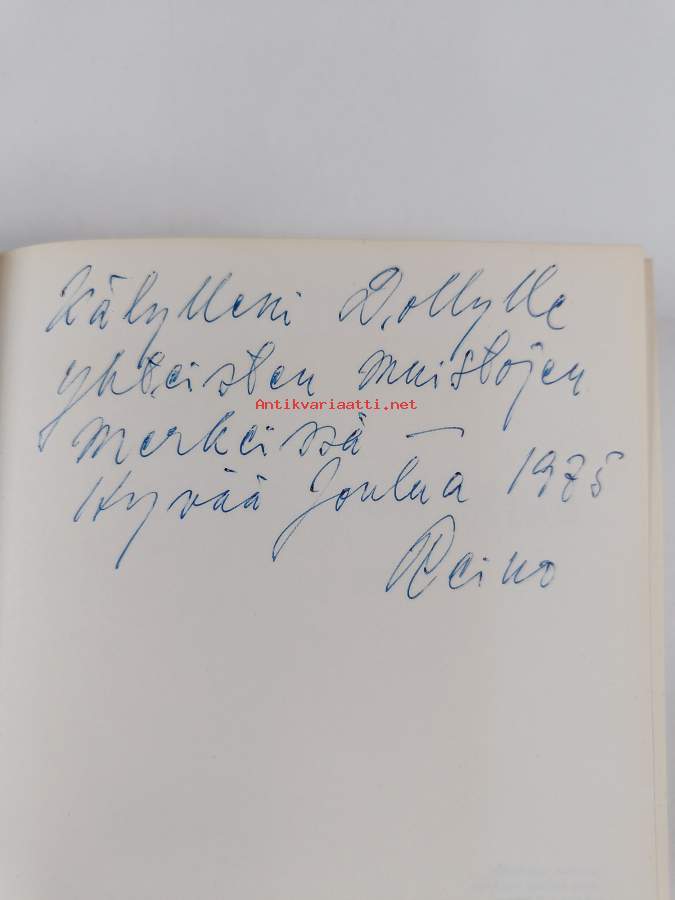 Kälylleni Dollylle
yhteisten muistojen
Antikvariaatti.net
merkeissä –
Hyvää Joulua 1975
Reino